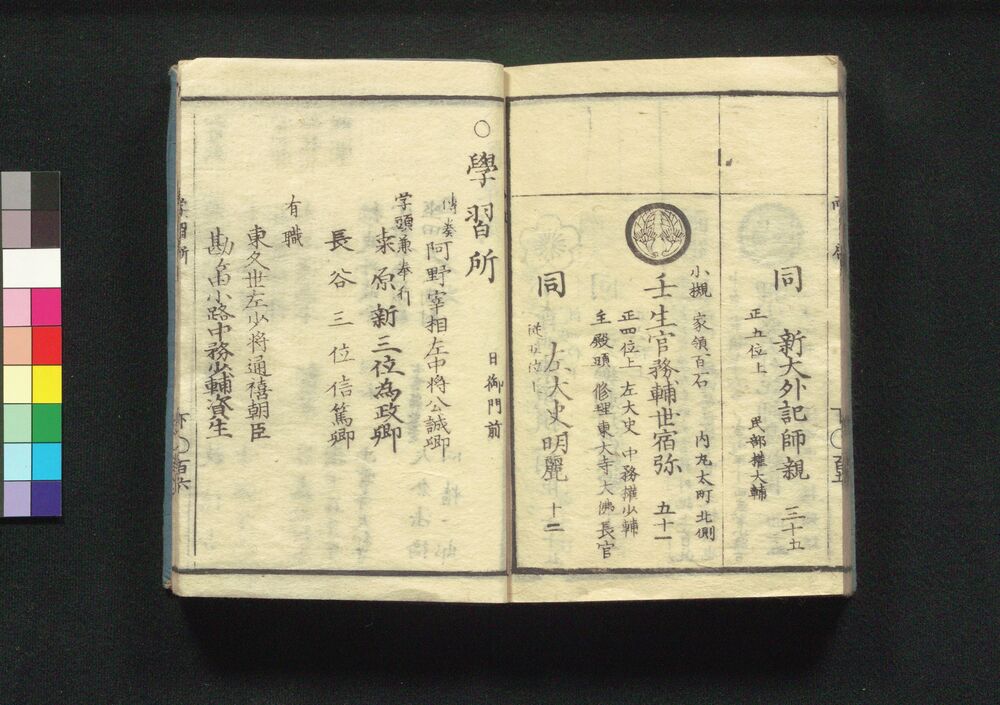 同 新大外記師親 三十五
正五位上 民部権大輔
小槻 家領百石 内丸太町北側
壬生官務輔世宿弥 五十一
正四位上 左大史 中務権少輔
主殿頭 修理東大寺大佛長官
同 左大史明麗 十二
從五位上
○學習所 日御門前
傳奏 阿野宰相左中将公誠卿
学頭兼奉行 桒原新三位為政卿
長谷三位信篤卿
有職
東久世左少将通禧朝臣
勘ヶ由小路中務少輔資生
學習所 下 ○百六